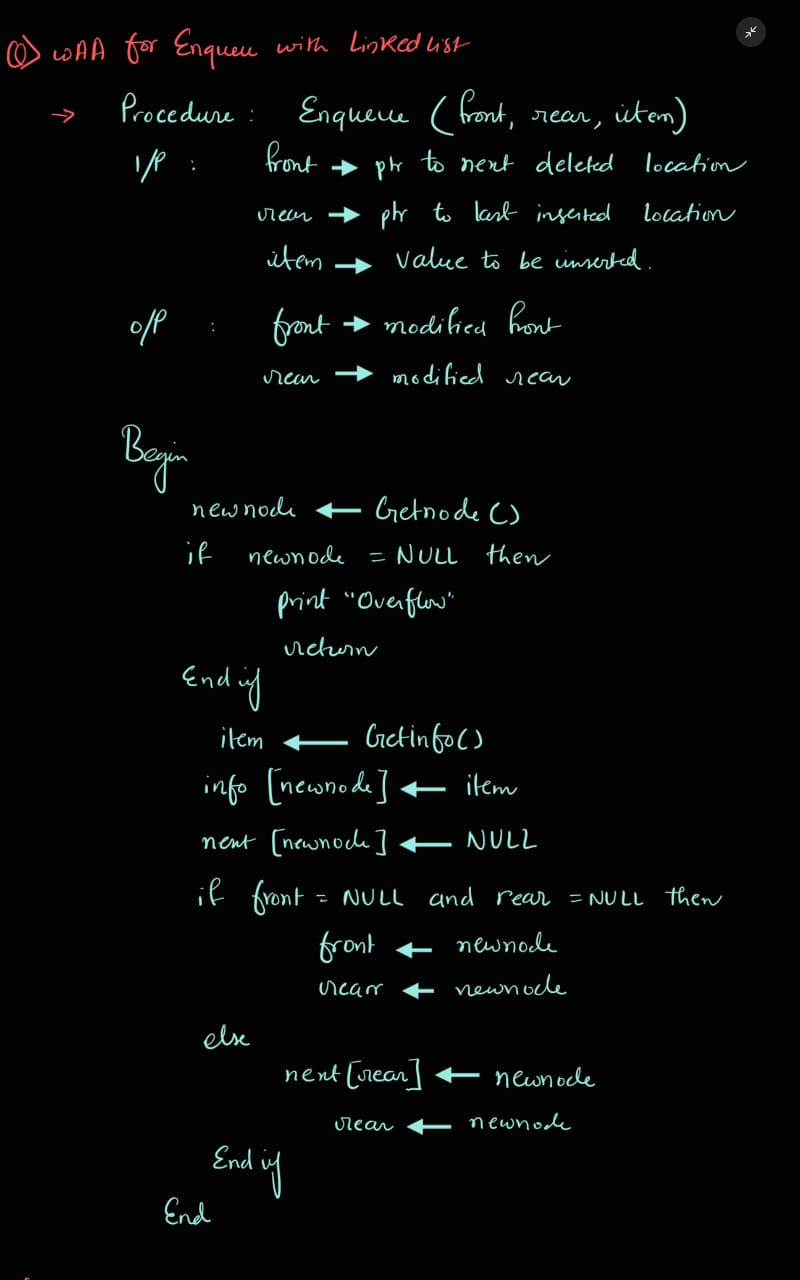 Q) WAA for Enqueue with Linked list
→ Procedure : Enqueue (front, rear, item)
I/P : front → ptr to next deleted location
rear → ptr to last inserted location
item → value to be inserted.
O/P : front → modified front
rear → modified rear
Begin
newnode ← Getnode()
if newnode = NULL then
print "Overflow"
return
End if
item ← Getinfo()
info [newnode] ← item
next [newnode] ← NULL
if front = NULL and rear = NULL then
front ← newnode
rear ← newnode
else
next [rear] ← newnode
rear ← newnode
End if
End